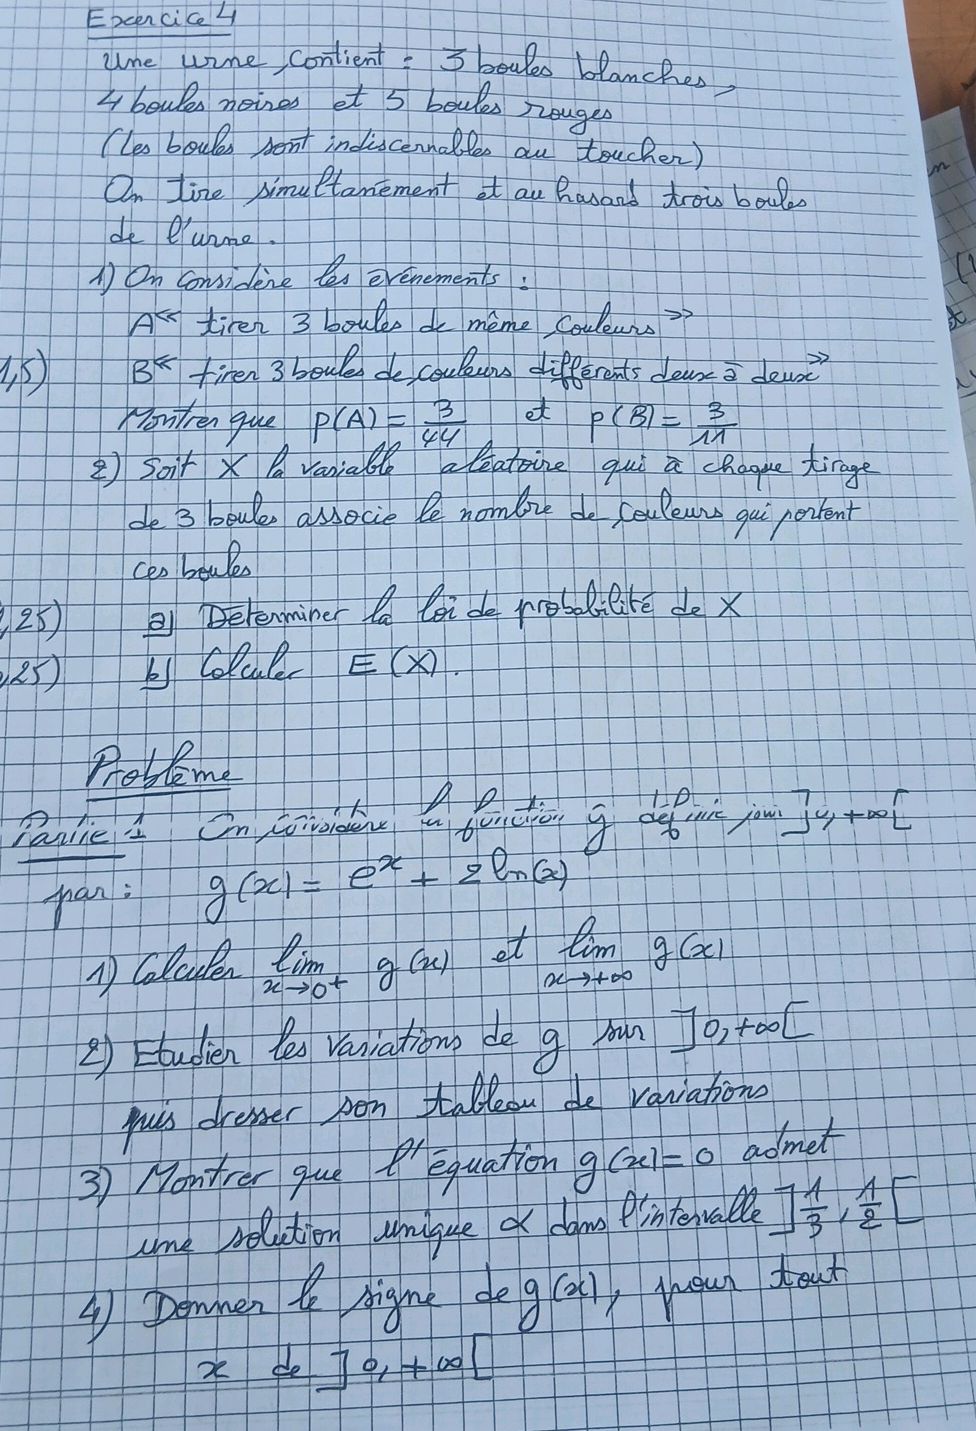 Exercice 4
Une urne contient : 3 boules blanches,
4 boules noires et 5 boules rouges
(les boules sont indiscernables au toucher)
On tire simultanément et au hasard trois boules
de l'urne.
1) On considère les événements :
A << tirer 3 boules de même couleurs >>
1,5) B << tirer 3 boules de couleurs différents deux à deux >>
Montrer que p(A) = 3/44 et p(B) = 3/11
2) Soit X la variable aléatoire qui à chaque tirage
de 3 boules associe le nombre de couleurs qui portent
ces boules
,25) a) Déterminer la loi de probabilité de X
,25) b) Calculer E(X).
Problème
Partie 1 On considère la fonction g définie sur ]0,+∞[
par : g(x) = e^x + 2 ln(x)
1) Calculer lim x→0+ g(x) et lim x→+∞ g(x)
2) Etudier les variations de g sur ]0,+∞[
puis dresser son tableau de variations
3) Montrer que l'équation g(x)=0 admet
une solution unique α dans l'intervalle ]1/3, 1/2[
4) Donner le signe de g(x), pour tout
x de ]0,+∞[